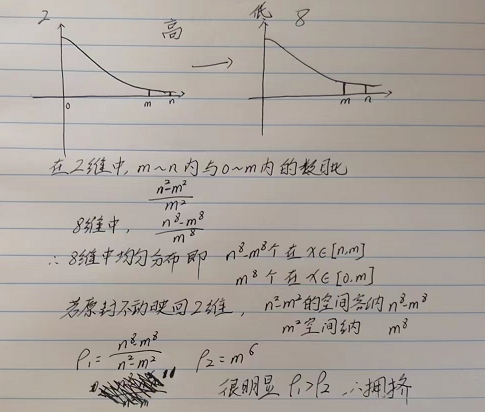 2 高 → 低 8
0 m n m n
在2维中, m~n内与0~m内的数目比
n²-m² / m²
8维中, n⁸-m⁸ / m⁸
∴ 8维中均匀分布即 n⁸-m⁸个在 x∈[n,m]
m⁸个在 x∈[0,m]
若原封不动映回2维, n²-m²的空间容纳 n⁸-m⁸
m²空间纳 m⁸
ρ₁= n⁸-m⁸ / n²-m² ρ₂=m⁶
很明显 ρ₁>ρ₂ ∴拥挤